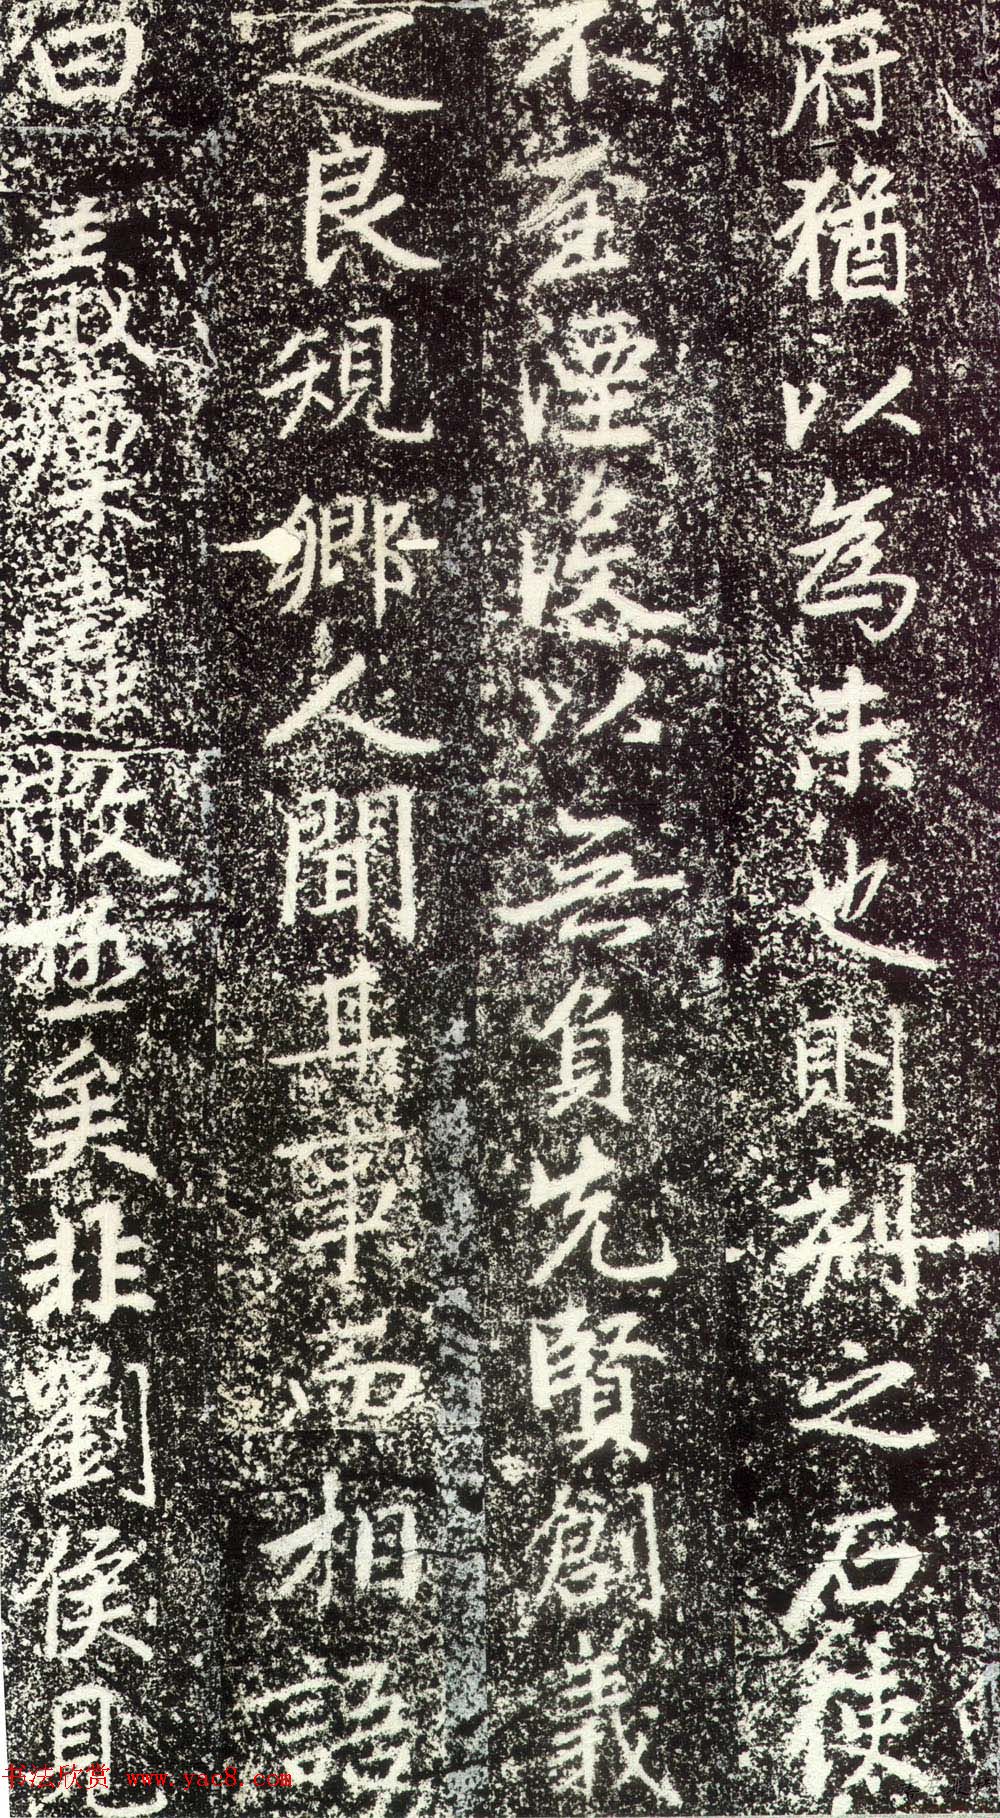 府猶以為未也則刻之石使
不至湮廢以無負先賢創義
之良規鄉人聞其事而相語
曰義廩蠹敝極矣非劉侯見
书法欣赏 www.yac8.com